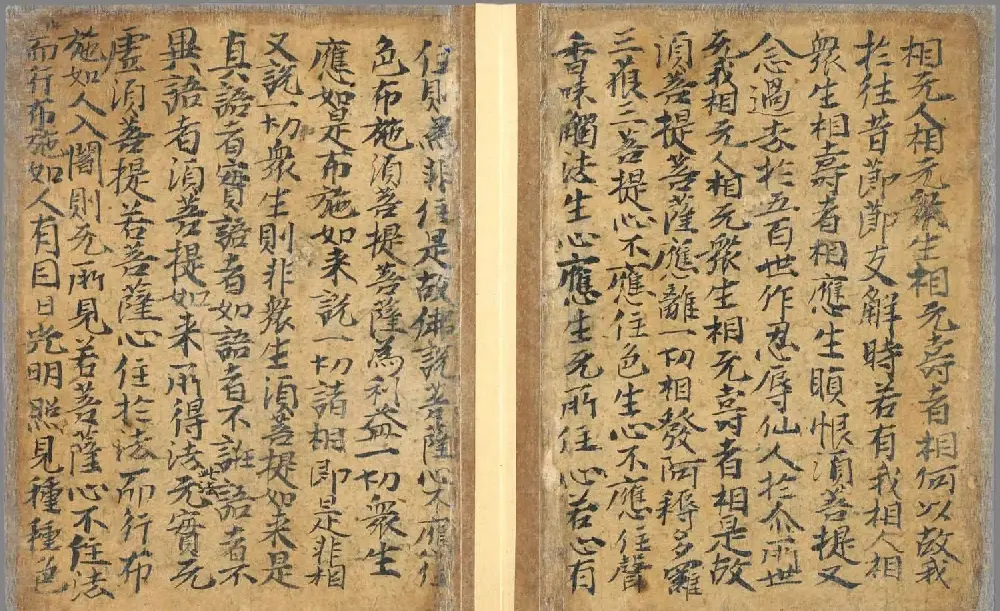 相无人相无衆生相无壽者相何以故我
扵往昔節節支解時若有我相人相
衆生相壽者相應生瞋恨須菩提又
念過去扵五百世作忍辱仙人扵尒所世
无我相无人相无衆生相无壽者相是故
須菩提菩薩應離一切相發阿耨多羅
三藐三菩提心不應住色生心不應住聲
香味觸法生心應生无所住心若心有
住則為非住是故佛說菩薩心不應住
色布施須菩提菩薩為利益一切衆生
應如是布施如来說一切諸相即是非相
又說一切衆生則非衆生須菩提如来是
真語者實語者如語者不誑語者不
異語者須菩提如来所得法此法无實无
虛須菩提若菩薩心住扵法而行布
施如人入闇則无所見若菩薩心不住法
而行布施如人有目日光明照見種種色